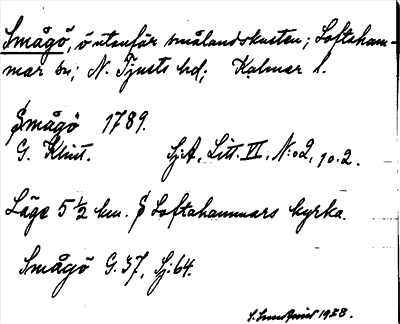 Smågö, ö utanför smålandskusten; Loftaham-
mar sn; N. Tjusts hd; Kalmar l.
Smågö 1789.
G. Klint. SjA, Litt. VI, N:o2, 10.2.
Läge 5 ½ km. S Loftahammars kyrka.
Smågö G. 37, Sj. 64.
1938.